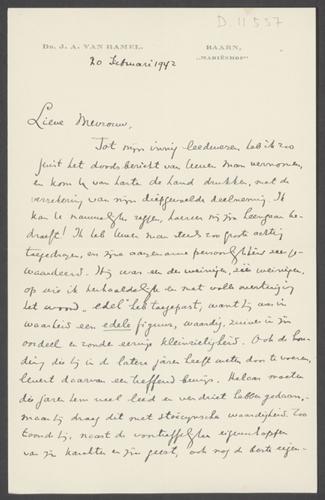 D. 11537
Dr. J. A. VAN HAMEL.
BAARN,
„MARIËNHOF”
20 Februari 1942
Lieve Mevrouw,
Tot mijn innig leedwezen heb ik zoo
juist het doodsbericht van Uwen man vernomen,
en kom U van harte de hand drukken, met de
verzekering van mijn diepgevoelde deelneming. Ik
kan U nauwelijks zeggen, hoezeer mij zijn heengaan be-
droeft! Ik heb Uwen man steeds zoo groote achting
toegedragen, en zijn aangename persoonlijkheid zeer ge-
waardeerd. Hij was een der weinigen, zéér weinigen,
op wie ik herhaaldelijk en met volle overtuiging
het woord „edel” heb toegepast, want hij was in
waarheid een edele figuur, waardig, zuiver in zijn
oordeel en zonder eenige kleinzieligheid. Ook de hou-
ding die hij in de latere jaren heeft weten door te voeren,
levert daarvan een treffend bewijs. Helaas moeten
die jaren hem veel leed en verdriet hebben gedaan,
maar hij droeg dit met stoïcynsche waardigheid. Zoo
toonde hij, naast de voortreffelijke eigenschappen
van zijn karakter en zijn geest, ook nog de beste eigen-